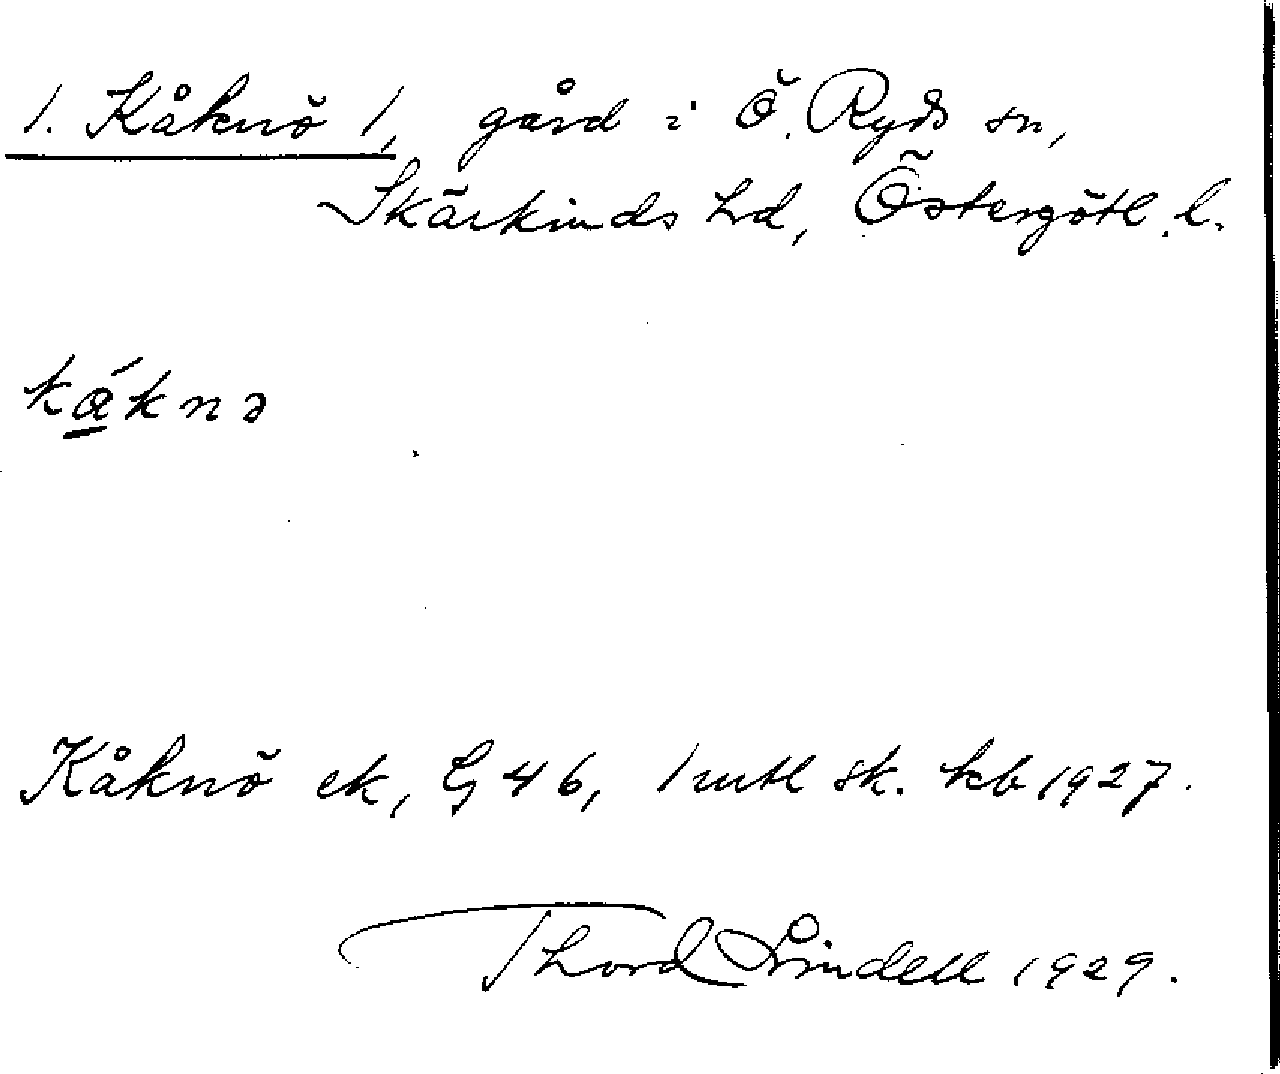 1. Kåknö 1, gård i Ö. Ryds sn,
Skärkinds hd, Östergötl. l.
kǽknə
Kåknö ek, G 46, 1 mtl sk. kb 1927.
Thord Lindell 1929.